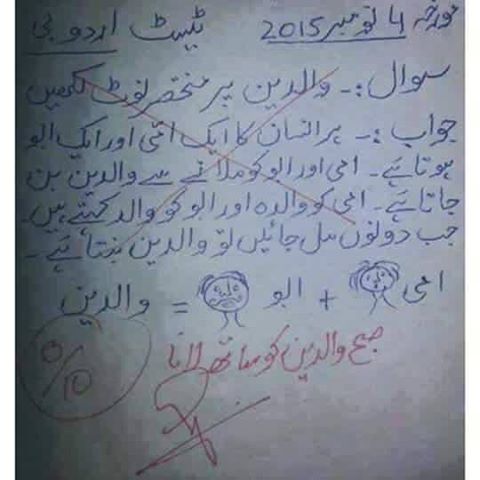 مورخہ 4 نومبر 2015 ٹیسٹ اردو بی
سوال :۔ والدین پر مختصر نوٹ لکھیں
جواب :۔ ہر انسان کا ایک امی اور ایک ابو
ہوتا ہے۔ امی اور ابو کو ملانے سے والدین بن
جاتا ہے۔ امی کو والدہ اور ابو کو والد کہتے ہیں۔
جب دونوں مل جائیں تو والدین بنتا ہے۔
امی + ابو = والدین
صبح والدین کو ساتھ لانا
0/10